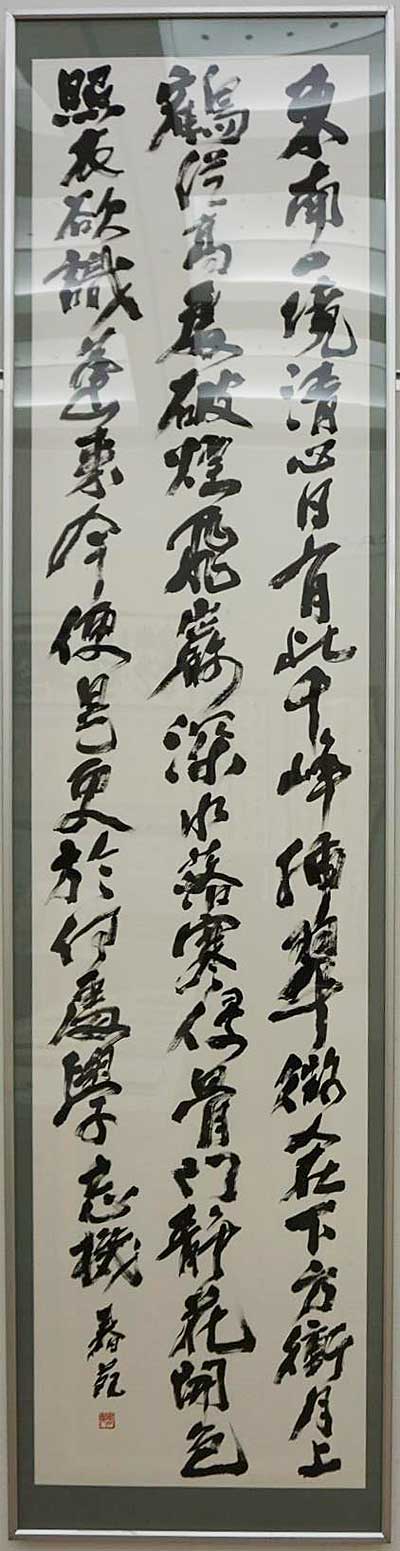 東南一境清心目有此千峰插翠微人在下方衝月上
鶴從高處破煙飛巖深水落寒侵骨門靜花開色
照衣欲識蓬萊今便是更於何處學忘機
春苑